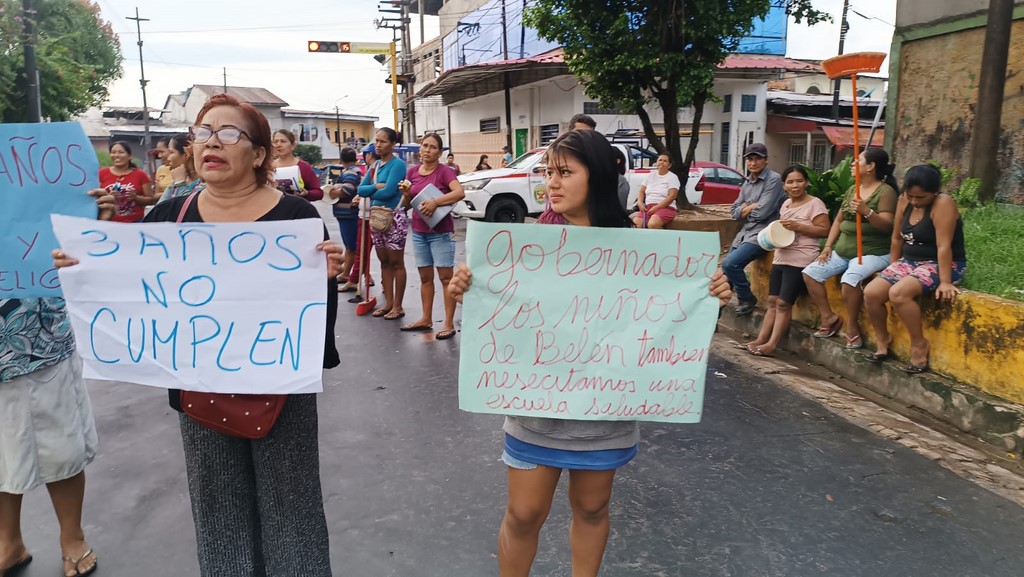 AÑOS
Y
3 AÑOS
NO
CUMPLEN
Gobernador
los niños
de Belén tambien
nesecitamos una
escuela saludable